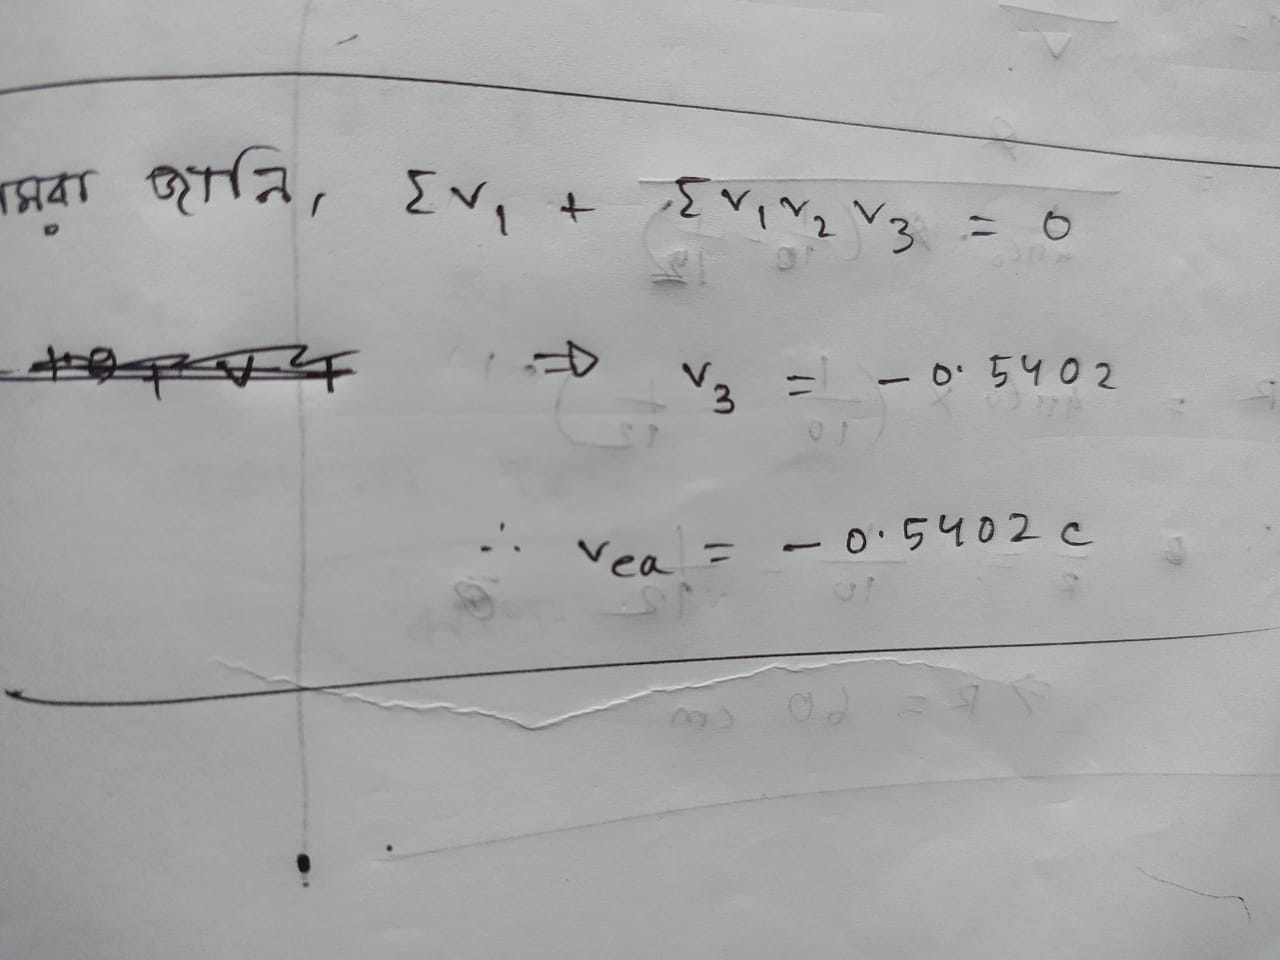 মরা জানি, Σv₁ + Σv₁v₂v₃ = 0
⇒ v₃ = - 0.5402
∴ vₑₐ = - 0.5402 c